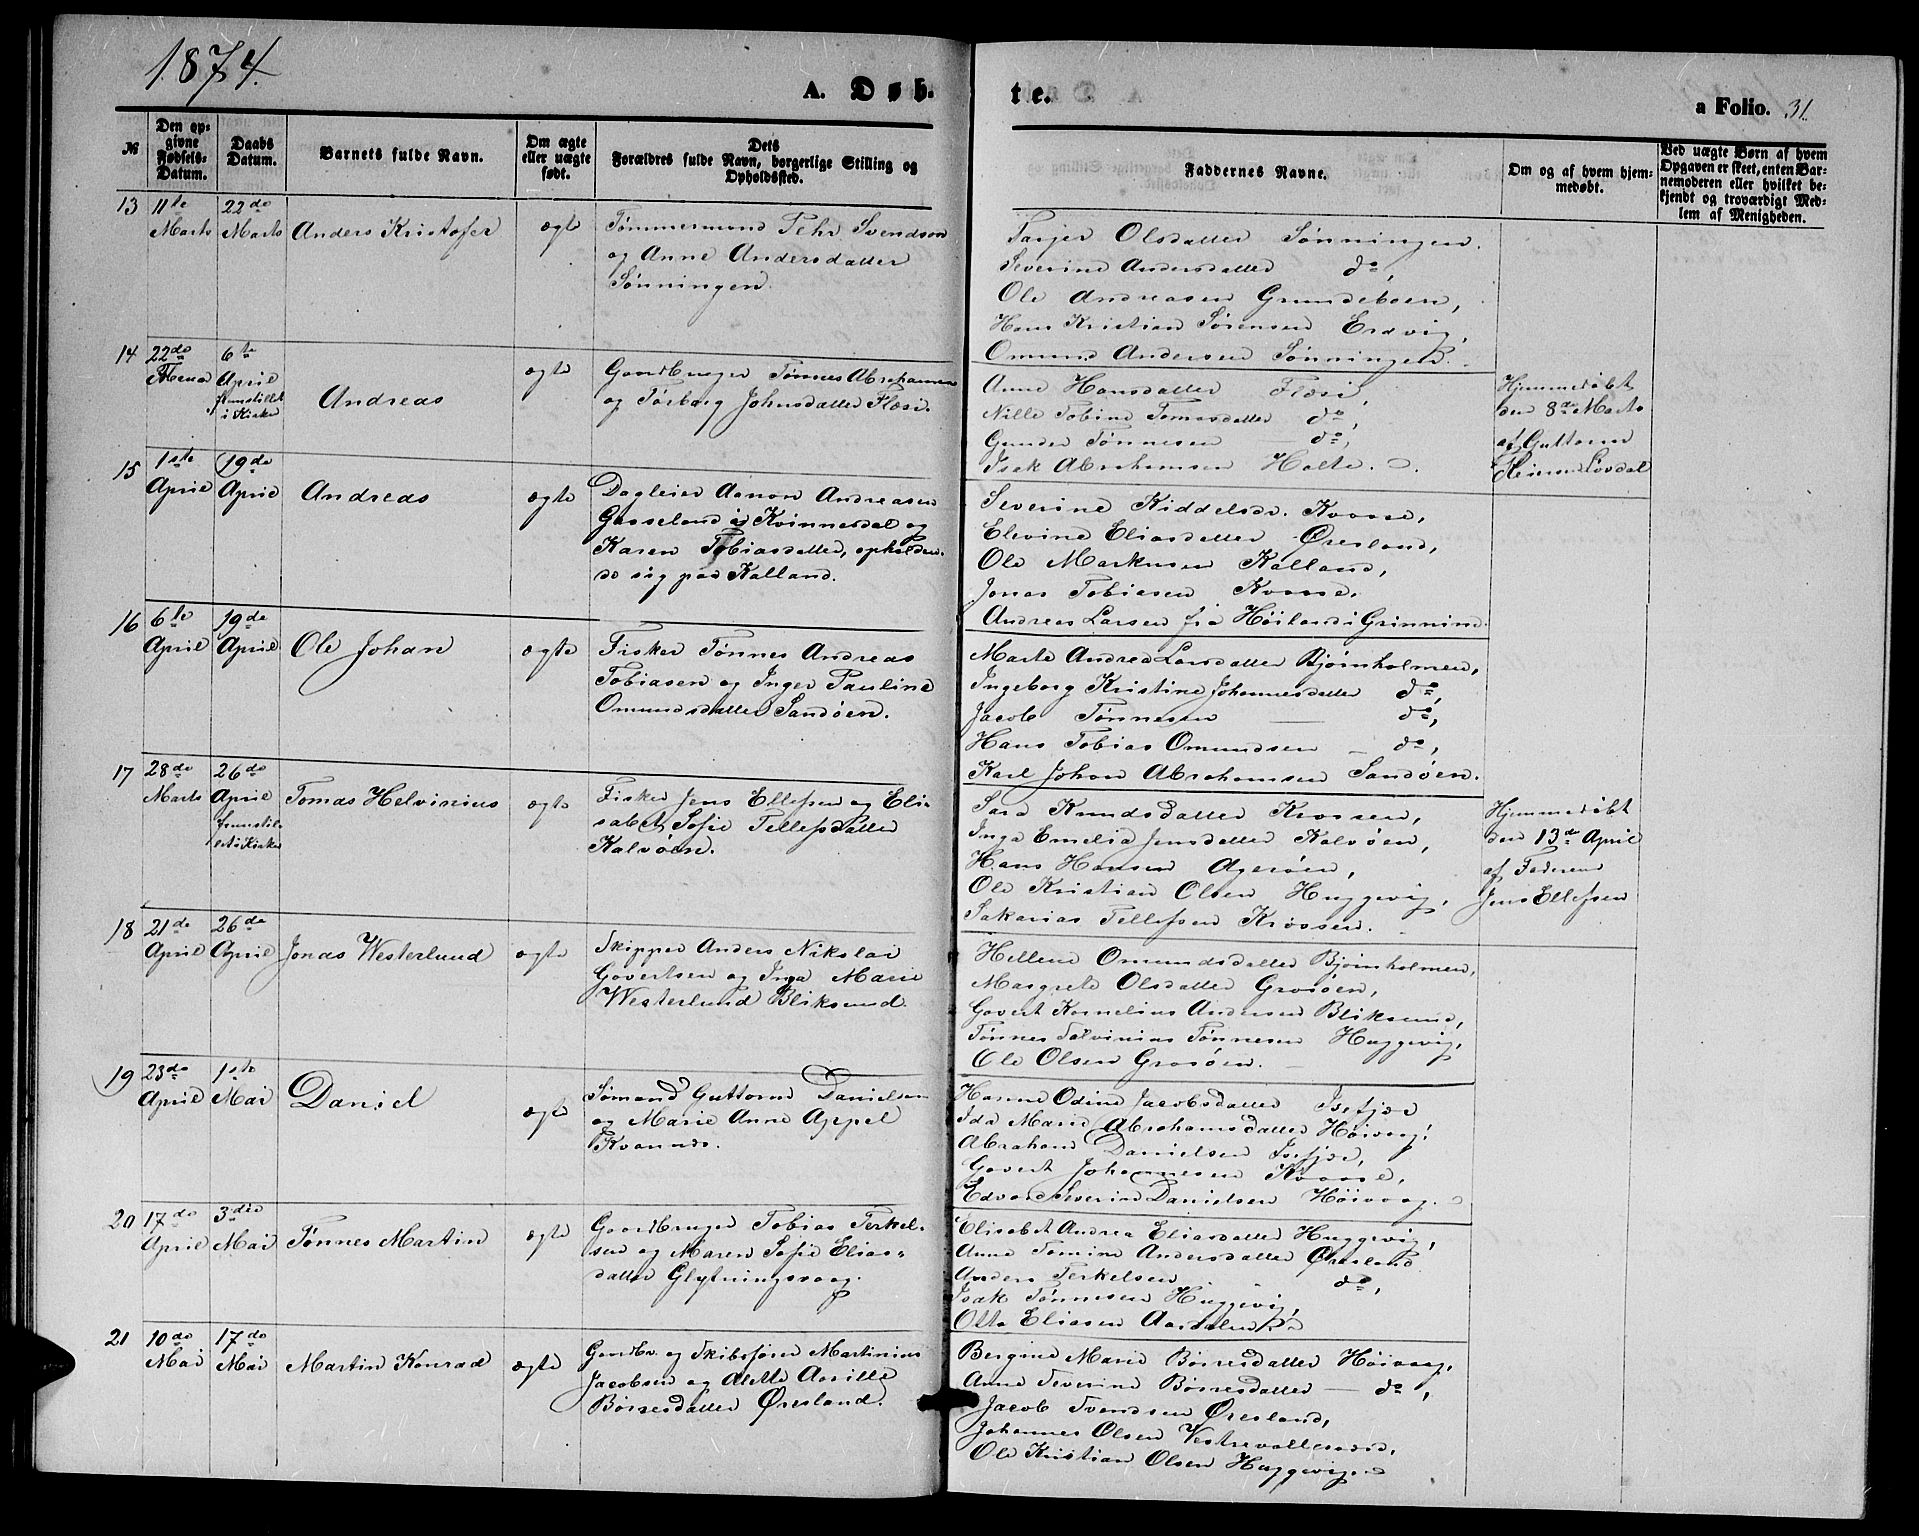 1874.
A. Døb-
te.
a Folio. 31.
№
Den op-
givne
Fødsels-
Datum.
Daabs
Datum.
Barnets fulde Navn.
Om ægte
eller uægte
født.
Dets
Forældres fulde Navn, borgerlige Stilling og
Opholdssted.
Faddernes Navne.
Om og af hvem hjem-
medøbt.
Ved uægte Børn af hvem
Opgaven er skeet, enten Bar-
nemoderen eller hvilket be-
kjendt og troværdigt Med-
lem af Menigheden.
13
11te
Marts
22de
Marts
Anders Kristofer
ægte
Tømmermand Pehr Svendsen
og Anne Andersdatter
Sønningen.
Tarjer Olsdatter Sønningen.
Severine Andersdatter do,
Ole Andreasen Grundeboen,
Hans Kristian Sørensen Eidvig,
Omund Andersen Sønningen.
14
22de
6te
April
fremstillet
i Kirke
Andreas
ægte
Gaardbruger Tønnes Abrahamsen
og Torborg Johnsdatter Fløsi.
Anne Hansdatter Fløsi,
Nille Tobine Tomasdatter do,
Gunder Tønnesen do,
Isak Abrahamsen Holte.
Hjemmedøbt
den 8de Marts
af Guttorm
Lovdal
15
1ste
April
19de
April
Andreas
ægte
Dagleier Aanon Andreasen
Gasseland i Kvinnesdal og
Karen Tobiasdatter, opholden-
de sig paa Kalland.
Severine Kiddelsdr. Kvaase,
Elevine Eliasdatter Øresland,
Ole Markusen Kalland,
Jonas Tobiasen Kvaase,
Andreas Larsen fra Høiland i Grinnine
16
6te
April
19de
April
Ole Johan
ægte
Fisker Tønnes Andreas
Tobiasen og Inger Pauline
Omundsdatter Sandøen.
Marte Andrea Larsdatter Bjørnholmen,
Ingeborg Kristine Johannesdatter do,
Jacob Tønnesen do,
Hans Tobias Omundsen do,
Karl Johan Abrahamsen Sandøen.
17
28de
Marts
26de
April
fremstil-
let i Kirke
Tomas Helvinius
ægte
Fisker Jens Ellefsen og Eli-
sabet Sofie Tellefsdatter
Kalvøen.
Sara Knudsdatter Krossen,
Inga Emelia Jensdatter Kalvøen,
Hans Hansen Agerøen,
Ole Kristian Olsen Huggevig,
Sakarias Tellefsen Krossen.
Hjemmedøbt
den 13de April
af Faderen
Jens Ellefsen
18
21de
April
26de
April
Jonas Westerlund
ægte
Skipper Anders Nikolai
Govertsen og Inga Marie
Westerlund Bliksund.
Hellene Omundsdatter Bjørnholmen,
Margrete Olsdatter Grosøen,
Govert Kornelius Andersen Bliksund,
Tønnes Tolvinias Tønnesen Huggevig,
Ole Olsen Grosøen.
19
23de
April
1ste
Mai
Daniel
ægte
Sømand Guttorm Danielsen
og Marie Anne Appel
Kvannes.
Hanne Odine Jacobsdatter Isefjær
Ida Marie Abrahamsdatter Høivaag,
Abraham Danielsen Isefjær,
Govert Johannesen Kvaase,
Edvard Severin Danielsen Høivaag.
20
17de
April
3die
Mai
Tønnes Martin
ægte
Gaardbruger Tobias Terkel-
sen og Maren Sofie Elias-
datter Glytningsvaag.
Elisabet Andrea Eliasdatter Huggevig,
Anne Tomine Andersdatter Øresland
Anders Terkelsen do,
Isak Tønnesen Huggevig,
Otto Eliasen Aasdalen
21
10de
Mai
17de
Mai
Martin Konrad
ægte
Gaardbr. og Skibsfører Martinius
Jacobsen og Alette Aasille
Børresdatter Øresland.
Bergine Marie Børresdatter Høivaag,
Anne Severine Børresdatter do,
Jacob Svendsen Øresland,
Johannes Olsen Vestrevallesværd,
Ole Kristian Olsen Huggevig.